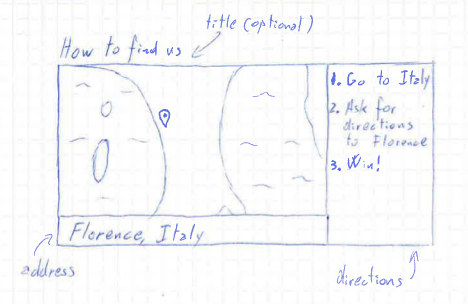 title (optional)
How to find us
1. Go to Italy
2. Ask for
directions
to Florence
3. Win!
Florence, Italy
address
directions